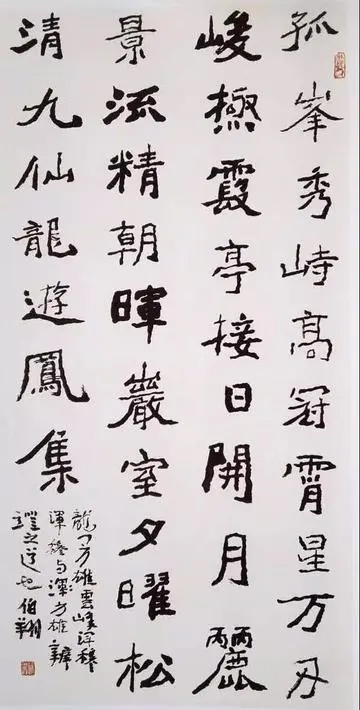 孤峯秀峙高冠霄星万丹
峻極霞亭接日開月麗
景流精朝暉巖室夕曜松
清九仙龍遊鳳集
龍門方雄雲峰渾穆
渾穆与渾方雄
之道也伯翔